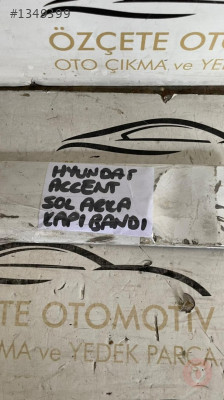 #1349399
ÖZÇETE OTO
OTO ÇIKMA ve YE
HYUNDAİ
ACCENT
SOL ARKA
KAPI BANDI
TE OTOMOTİV
MA ve YEDEK PARÇA